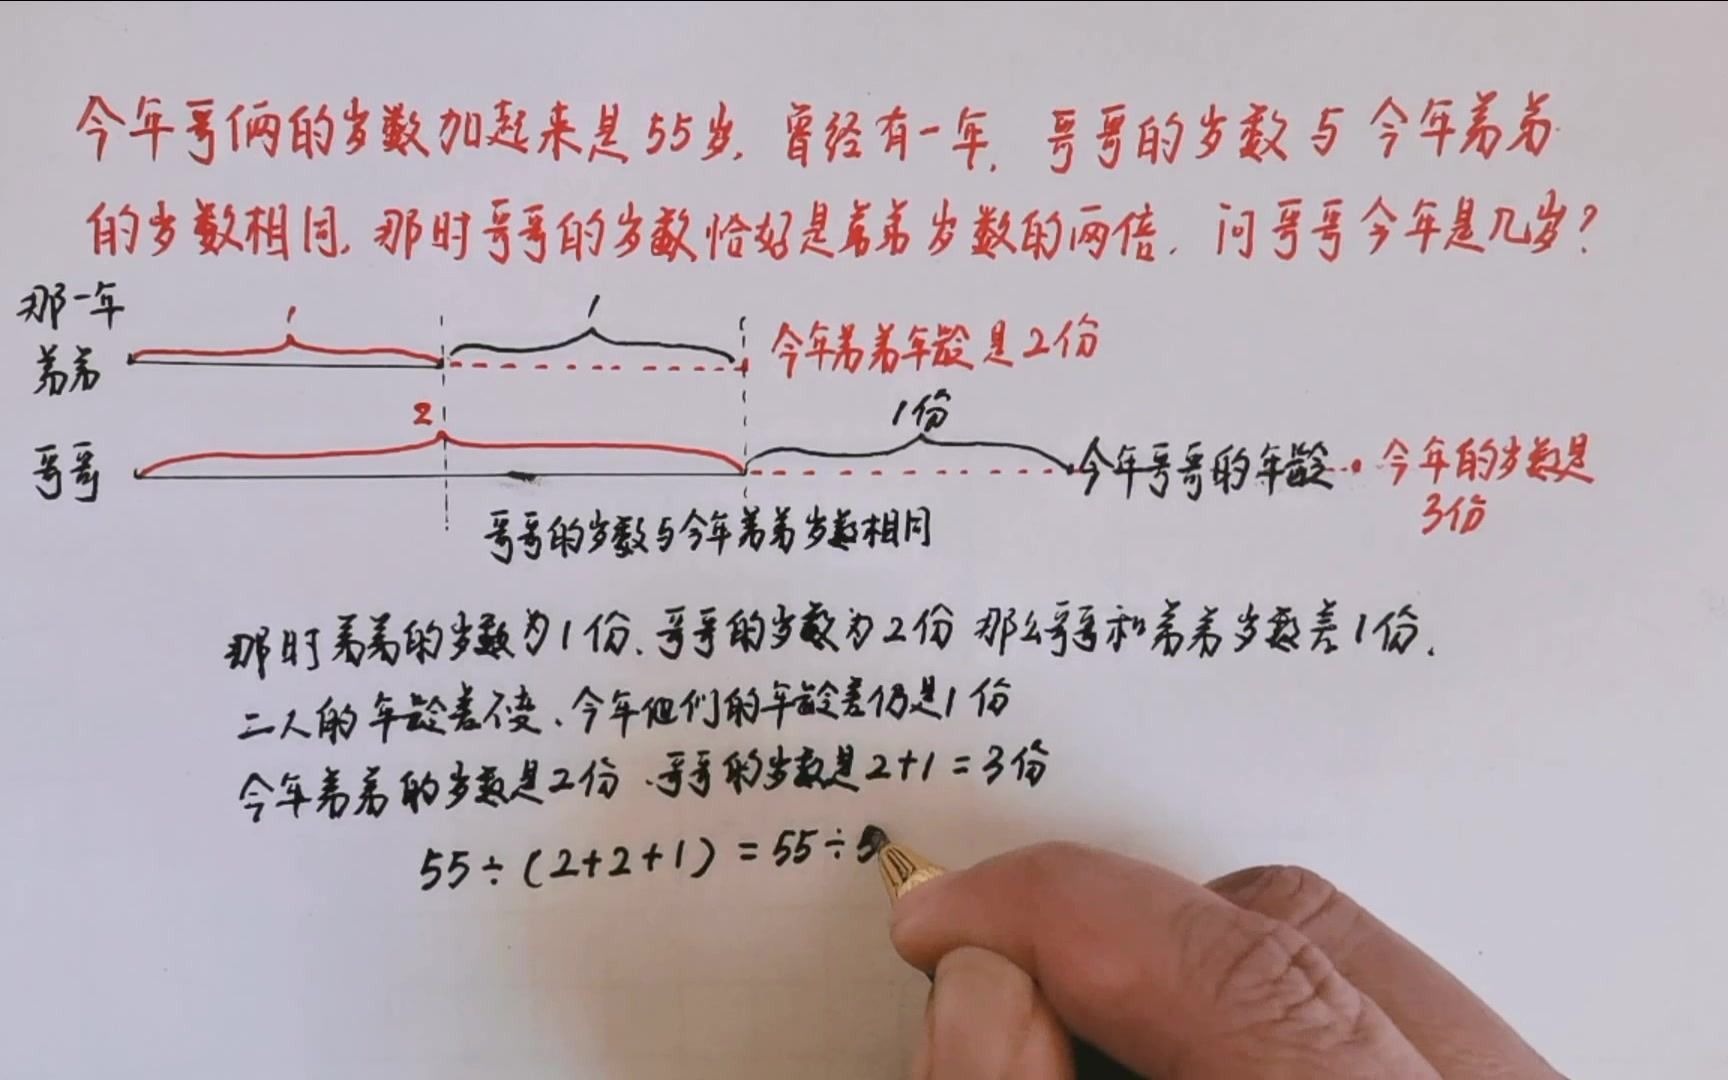 今年哥俩的岁数加起来是55岁.曾经有一年,哥哥的岁数与今年弟弟
的岁数相同.那时哥哥的岁数恰好是弟弟岁数的两倍.问哥哥今年是几岁?
那一年
1
1
弟弟
今年弟弟年龄是2份
2
1份
哥哥
今年哥哥的年龄
今年的岁数是
3份
哥哥的岁数与今年弟弟岁数相同
那时弟弟的岁数为1份.哥哥的岁数为2份 那么哥哥和弟弟岁数差1份.
二人的年龄差不变、今年他们的年龄差仍是1份
今年弟弟的岁数是2份.哥哥的岁数是2+1=3份
55÷(2+2+1)=55÷5